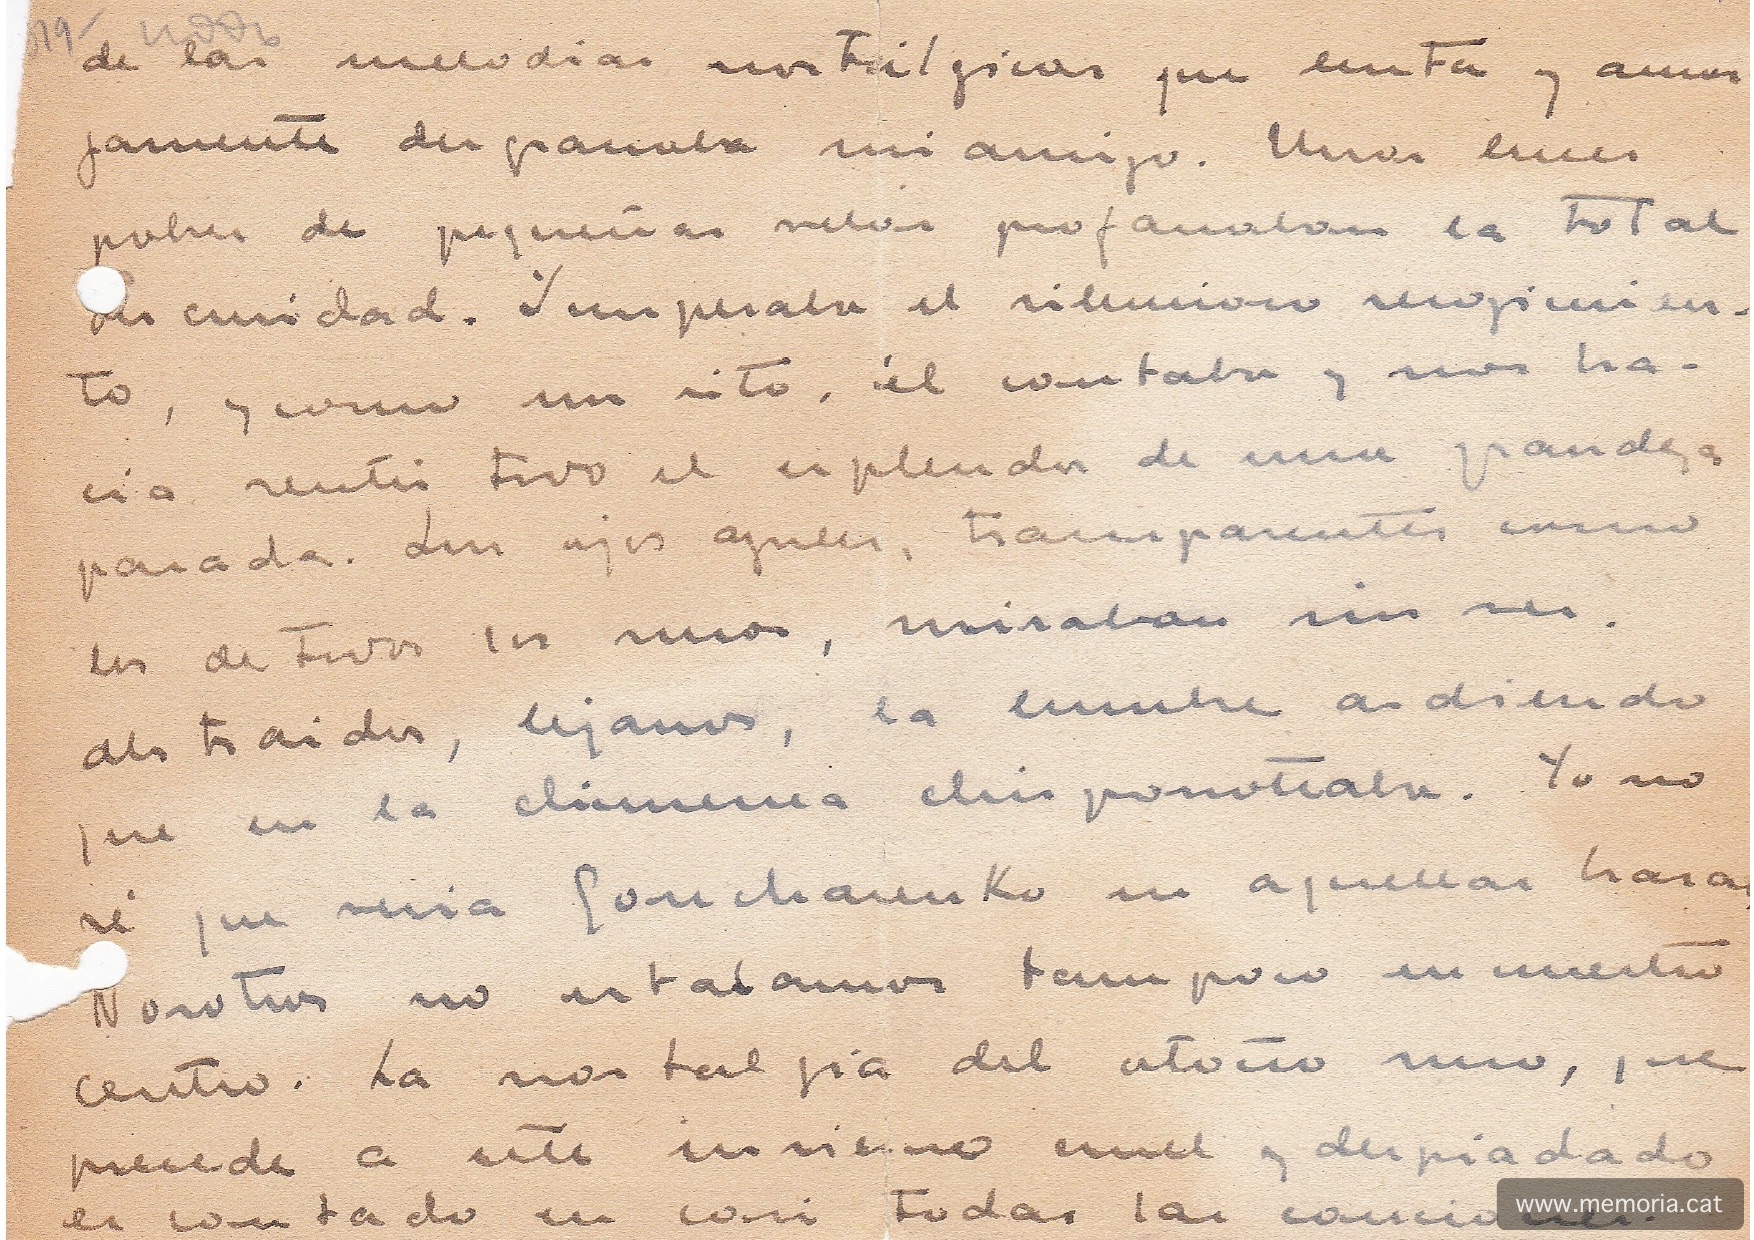 de las melodias nostálgicas que lenta y amor
jamente desgranaba mi amigo. Unas luces
pobres de pequeñas velas profanaban la total
oscuridad. Imperaba el silencioso recogimien-
to, y como un rito, él cantaba y nos ha-
cia sentir todo el esplendor de una grandeza
pasada. Sus ojos azules, transparentes como
los de todos los rusos, miraban sin ver.
abstraidos, lejanos, la lumbre ardiendo
que en la chimenea chisporroteaba. Yo no
sé que veria Goncharenko en aquellas brasas,
Nosotros no estabamos tampoco en nuestro
centro. La nostalgia del otoño ruso, que
precede a este invierno cruel y despiadado
es cantado en casi todas las canciones.
www.memoria.cat